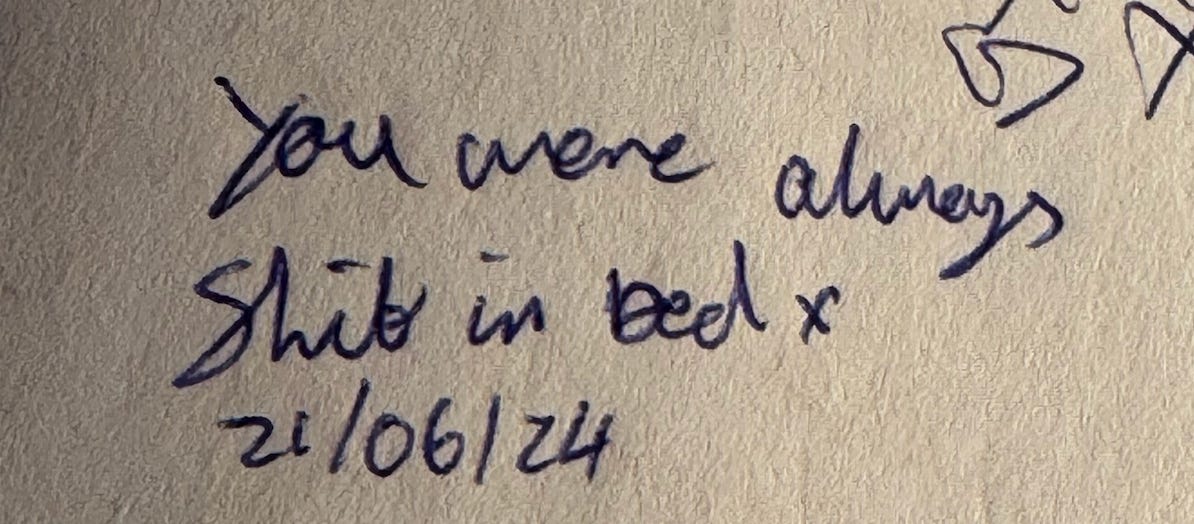 You were always
Shit in bed x
21/06/24